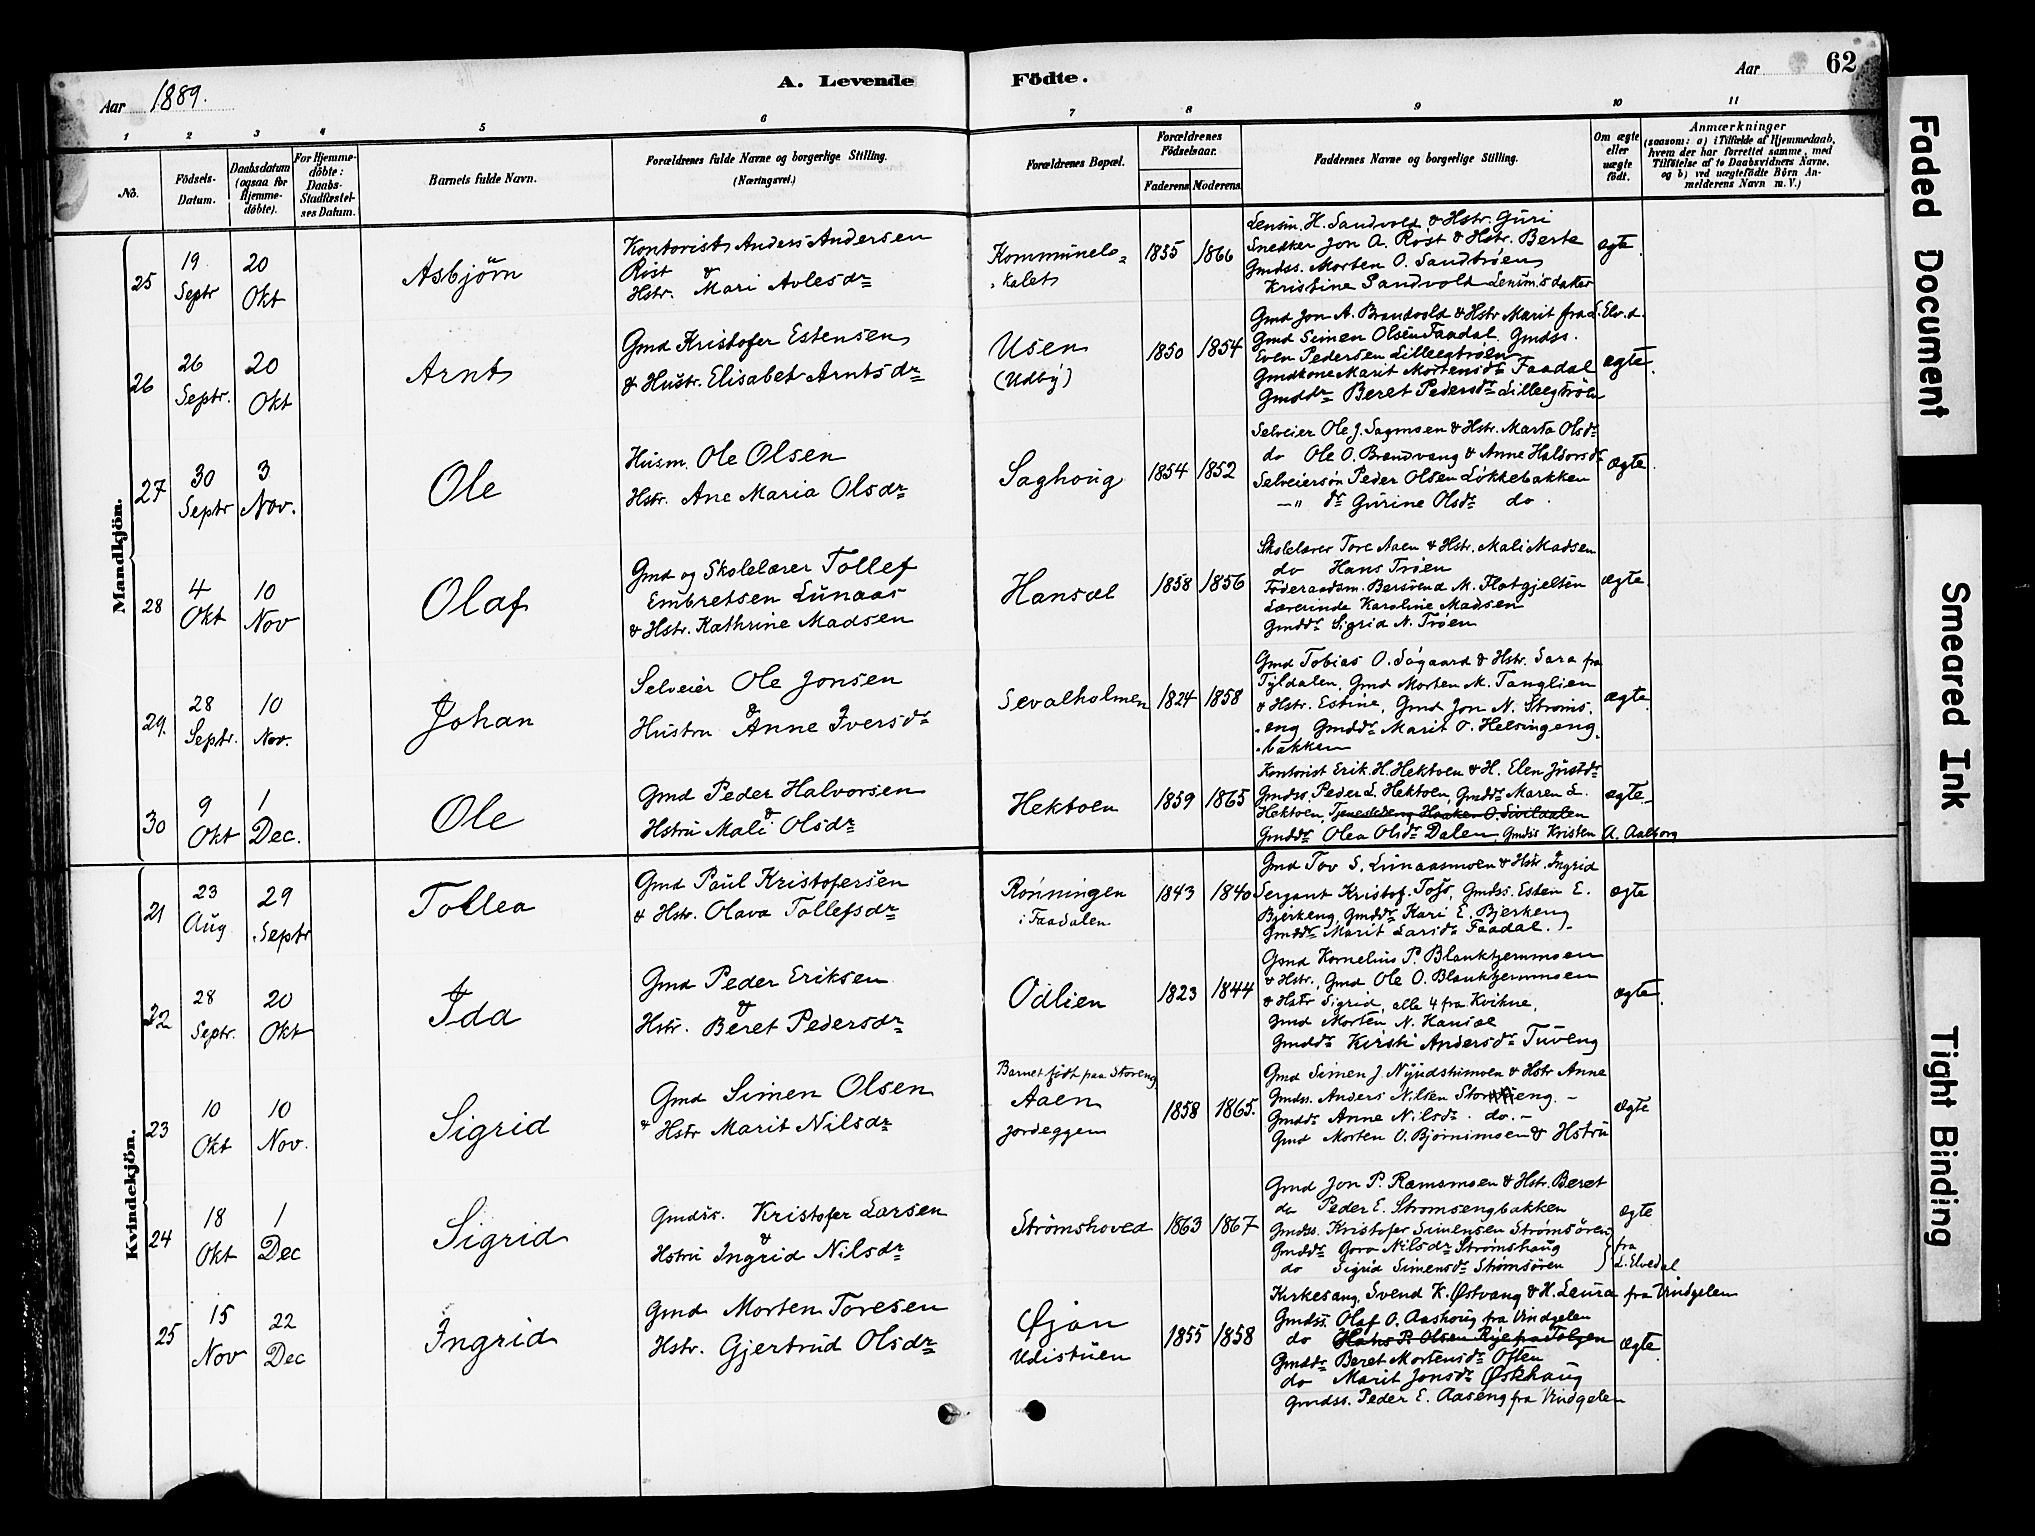 Aar 1889.
A. Levende Födte.
Aar 62
1 2 3 4 5 6 7 8 9 10 11
No.
Födsels-Datum.
Daabsdatum (ogsaa for Hjemmedöbte).
For Hjemmedöbte: Daabs-Stadfæstelses Datum.
Barnets fulde Navn.
Forældrenes fulde Navne og borgerlige Stilling. (Næringsvei.)
Forældrenes Bopæl.
Forældrenes Födselsaar.
Faderens Moderens
Faddernes Navne og borgerlige Stilling.
Om ægte eller uægte födt.
Anmærkninger
(saasom: a) i Tilfælde af Hjemmedaab, hvem der har forrettet samme, med Tilföielse af to Daabsvidners Navne, og b) ved uægtefödte Börn Anmelderens Navn m. V.)
Mandkjön.
25 19 Septr 20 Okt Asbjörn
Kontorist Anders Andersen
Röst &
Hstr. Mari Avlesdr
Kommunelo-
kalet
1855 1866
Lensm. H. Sandvold & Hstr. Guri
Snedker Jon A. Röst & Hstr. Berte
Gmdss. Morten O. Sandtröen
Kristine Sandvold Lensm's datter
ægte.
26 26 Septr. 20 Okt Arnt
Gmd Kristofer Estensen
& Hustr. Elisabet Arntsdr
Usen
(Udby)
1850 1854
Gmd Jon A. Brandvold & Hstr Marit fra L. Elv.d.
Gmd Simen Olsen Faadal, Gmdss.
Even Pedersen Lilleegtröen
Gmdkone Marit Mortensdr Faadal
Gmddr Beret Pedersdr Lilleegtröen
ægte.
27 30 Septr 3 Nov. Ole
Husm. Ole Olsen
Hstr. Ane Maria Olsdr
Saghoug
1854 1852
Selveier Ole J. Sagmoen & Hstr. Marta Olsdr
do Ole O. Brandvang & Anne Halvorsdr
Selveiersön Peder Olsen Lökkebakken
—" dr Gurine Olsdr do.
ægte
28 4 Okt 10 Nov Olaf
Gmd og Skolelærer Tollef
Embretsen Lunaas
& Hstr. Kathrine Madsen
Hansæl
1858 1856
Skolelærer Tore Aaen & Hstr. Mali Madsen
do Hans Tröen
Föderaadsm. Bersvend M. Flatgjelten
Lærerinde Karoline Madsen
Gmddr Sigrid N. Tröen
ægte
29. 28 Septr. 10 Nov. Johan
Selveier Ole Jonsen
&
Hustru Anne Iversdr
Sevalholmen
1824 1858
Gmd Tobias O. Sögaard & Hstr. Sara fra
Tyldalen, Gmd Morten M. Tanglien
& Hstr. Estine, Gmd Jon N. Ströms-
eng Gmddr Marit O. Helsingeng-
bakken
ægte
30 9 Okt 1 Dec. Ole
Gmd Peder Halvorsen
&
Hstru Mali Olsdr
Hektoen
1859 1865
Kontorist Erik H. Hektoen & H. Elen Justdr
Gmdss. Peder L. Hektoen, Gmddr Maren L.
Hektoen, Tjenestedreng Haaken O. Sivildalen
Gmddr Olea Olsdr Dalen, Gmdss Kristen A. Aalborg
ægte
Kvindekjön.
21 23 Aug 29 Septr Tollea
Gmd Paul Kristofersen
& Hstr. Olava Tollefsdr
Rönningen
i Faadalen
1843 1840
Gmd Tov S. Lunaasmoen & Hstr. Ingrid
Sergant Kristof. Töfs, Gmdss. Esten E.
Bjerkeng, Gmddr Kari E. Bjerkeng
Gmddr Marit Larsdr Faadal.
ægte
22 28 Septr. 20 Okt Ida
Gmd Peder Eriksen
&
Hstr. Beret Pedersdr
Odlien
1823 1844
Gmd Kornelius P. Blanktjernmoen
& Hstr., Gmd Ole O. Blanktjernmoen
& Hstr Sigrid, alle 4 fra Kvikne,
Gmd Morten N. Hansæl
Gmddr Kirsti Andersdr Tuveng
ægte.
23 10 Okt 10 Nov. Sigrid
Gmd Simen Olsen
& Hstr Marit Nilsdr
Barnet födt paa Storeng
Aaen
Jordeggen
1858 1865.
Gmd Simen J. Nyudstumoen & Hstr Anne
Gmdss. Anders Nilsen Storeng. -
Gmddr Anne Nilsdr. do. -
Gmd Morten O. Bjørnimoen & Hstru
Ægte
24 18 Okt 1 Dec Sigrid
Gmdss. Kristofer Larsen
&
Hstru Ingrid Nilsdr
Strömshoved
1863 1867
Gmd Jon P. Ramsmoen & Hstr. Beret
do Peder E. Strömsengbakken
Gmdss. Kristofer Simensen Strömsören
Gmddr Goro Nilsdr Strömshaug
do Sigrid Simensdr Strömsören
fra
L. Elvedal
ægte
25 15 Nov 22 Dec Ingrid
Gmd Morten Toresen
Hstr. Gjertrud Olsdr
Øian
Udistuen
1855 1858
Kirkesang. Svend K. Østvang & H. Laura fra Vindgelen
Gmdss. Olaf O. Aashoug fra Vindgelen
do Hans P. Olsen Rye fra Tolgen
Gmddr Beret Mortensdr Often
do Marit Jonsdr Østhaug
Gmdss. Peder E. Aaseng fra Vindgelen
ægte.
Faded Document
Smeared Ink
Tight Binding